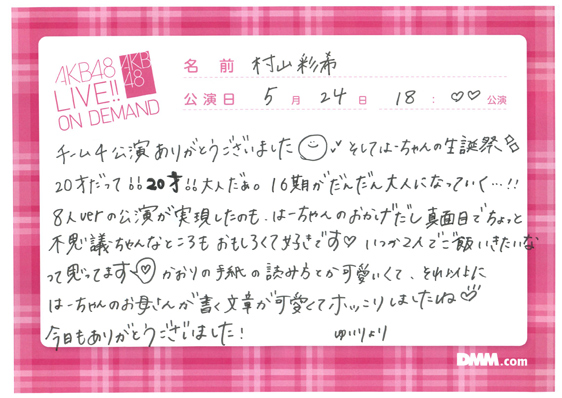 AKB48
LIVE!!
ON DEMAND
AKB
48
名 前 村山彩希
公演日 5月 24日 18:♡♡公演
チーム4公演ありがとうございました そしてはーちゃんの生誕祭
20才だって!!20才!!大人だぁ。16期がだんだん大人になっていく…!!
8人verの公演が実現したのも、はーちゃんのおかげだし真面目でちょっと
不思議ちゃんなところもおもしろくて好きです♡ いつか2人でご飯いきたいな
って思ってます♡ かおりの手紙の読み方とか可愛いくて、それ以上に
はーちゃんのお母さんが書く文章が可愛くてホッコリしましたね♡
今日もありがとうございました! ゆいりより
DMM.com